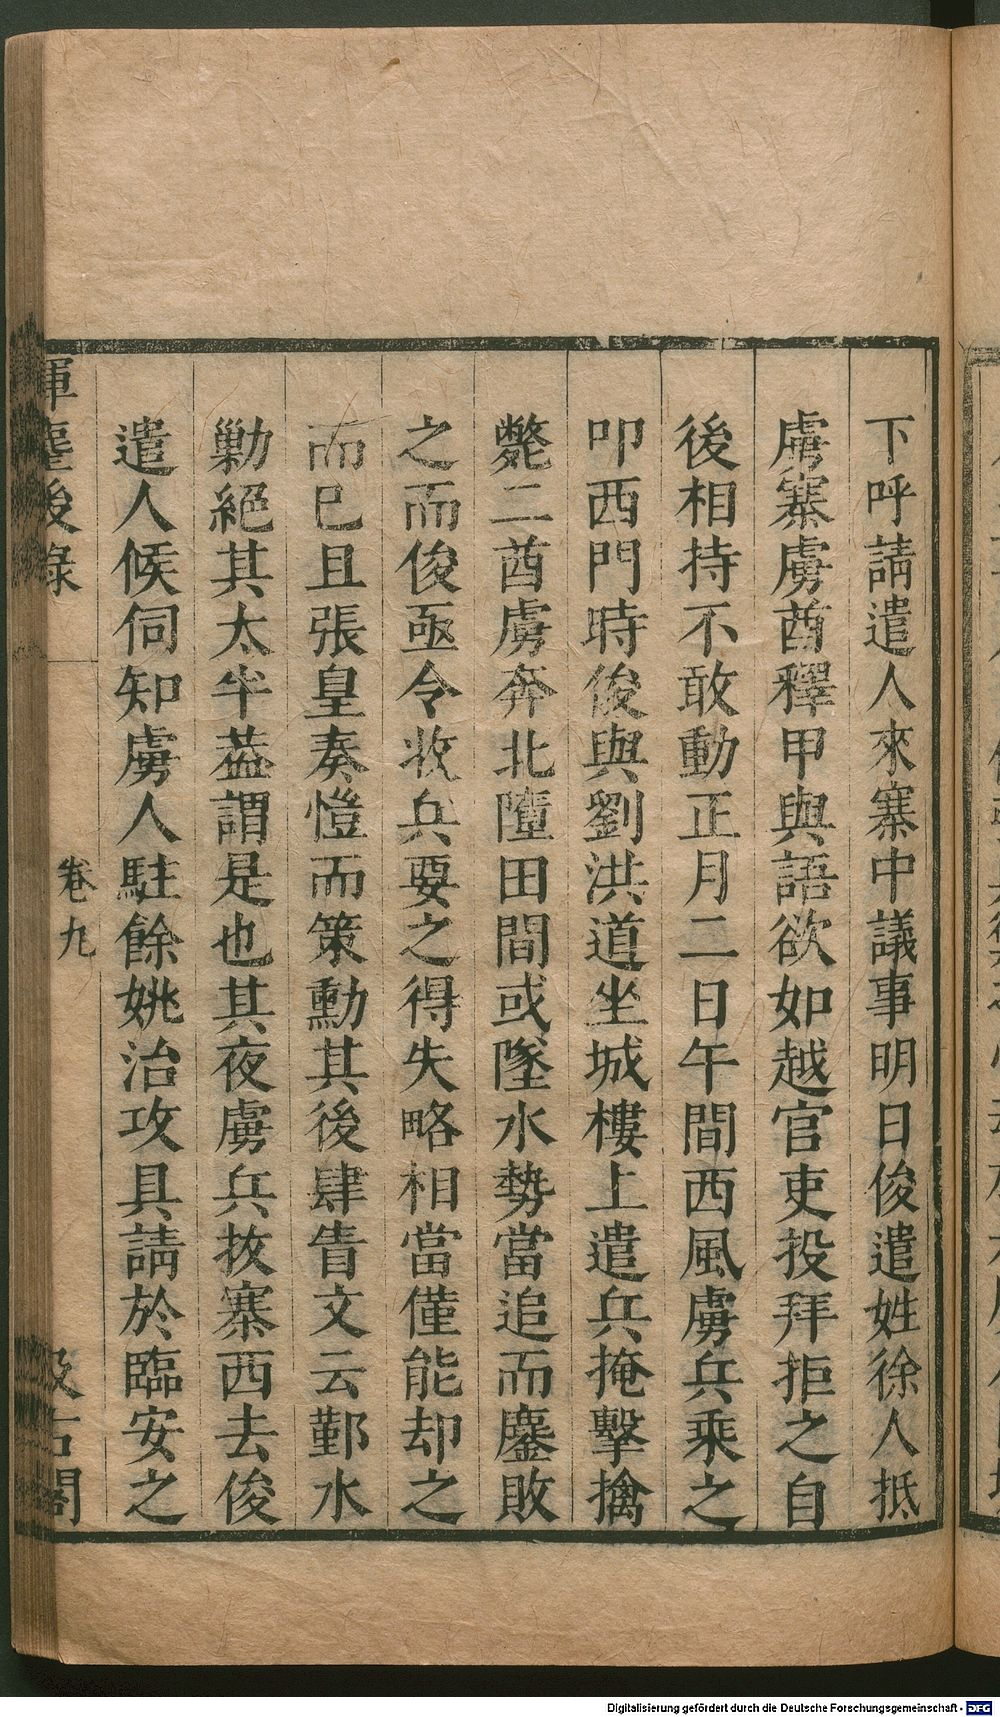 下呼請遣人來寨中議事明日俊遣姓徐人抵
虜寨虜酋釋甲與語欲如越官吏投拜拒之自
後相持不敢動正月二日午間西風虜兵乘之
叩西門時俊與劉洪道坐城樓上遣兵掩擊擒
斃二酋虜奔北墮田間或墜水勢當追而鏖敗
之而俊亟令收兵要之得失略相當僅能却之
而已且張皇奏愷而策勳其後肆眚文云鄞水
勦絕其太半葢謂是也其夜虜兵拔寨西去俊
遣人候伺知虜人駐餘姚治攻具請於臨安之
揮麈後錄
卷九
汲古閣
Digitalisierung gefördert durch die Deutsche Forschungsgemeinschaft - DFG